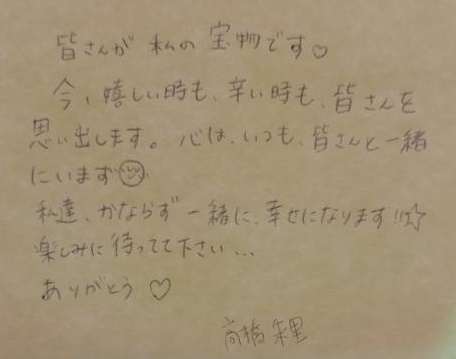 皆さんが 私の 宝物です♡
今、嬉しい時も、辛い時も、皆さんを
思い出します。心は、いつも、皆さんと一緒
にいます☺
私達、かならず 一緒に、幸せになります!!☆
楽しみに 待ってて下さい...
ありがとう ♡
高橋朱里